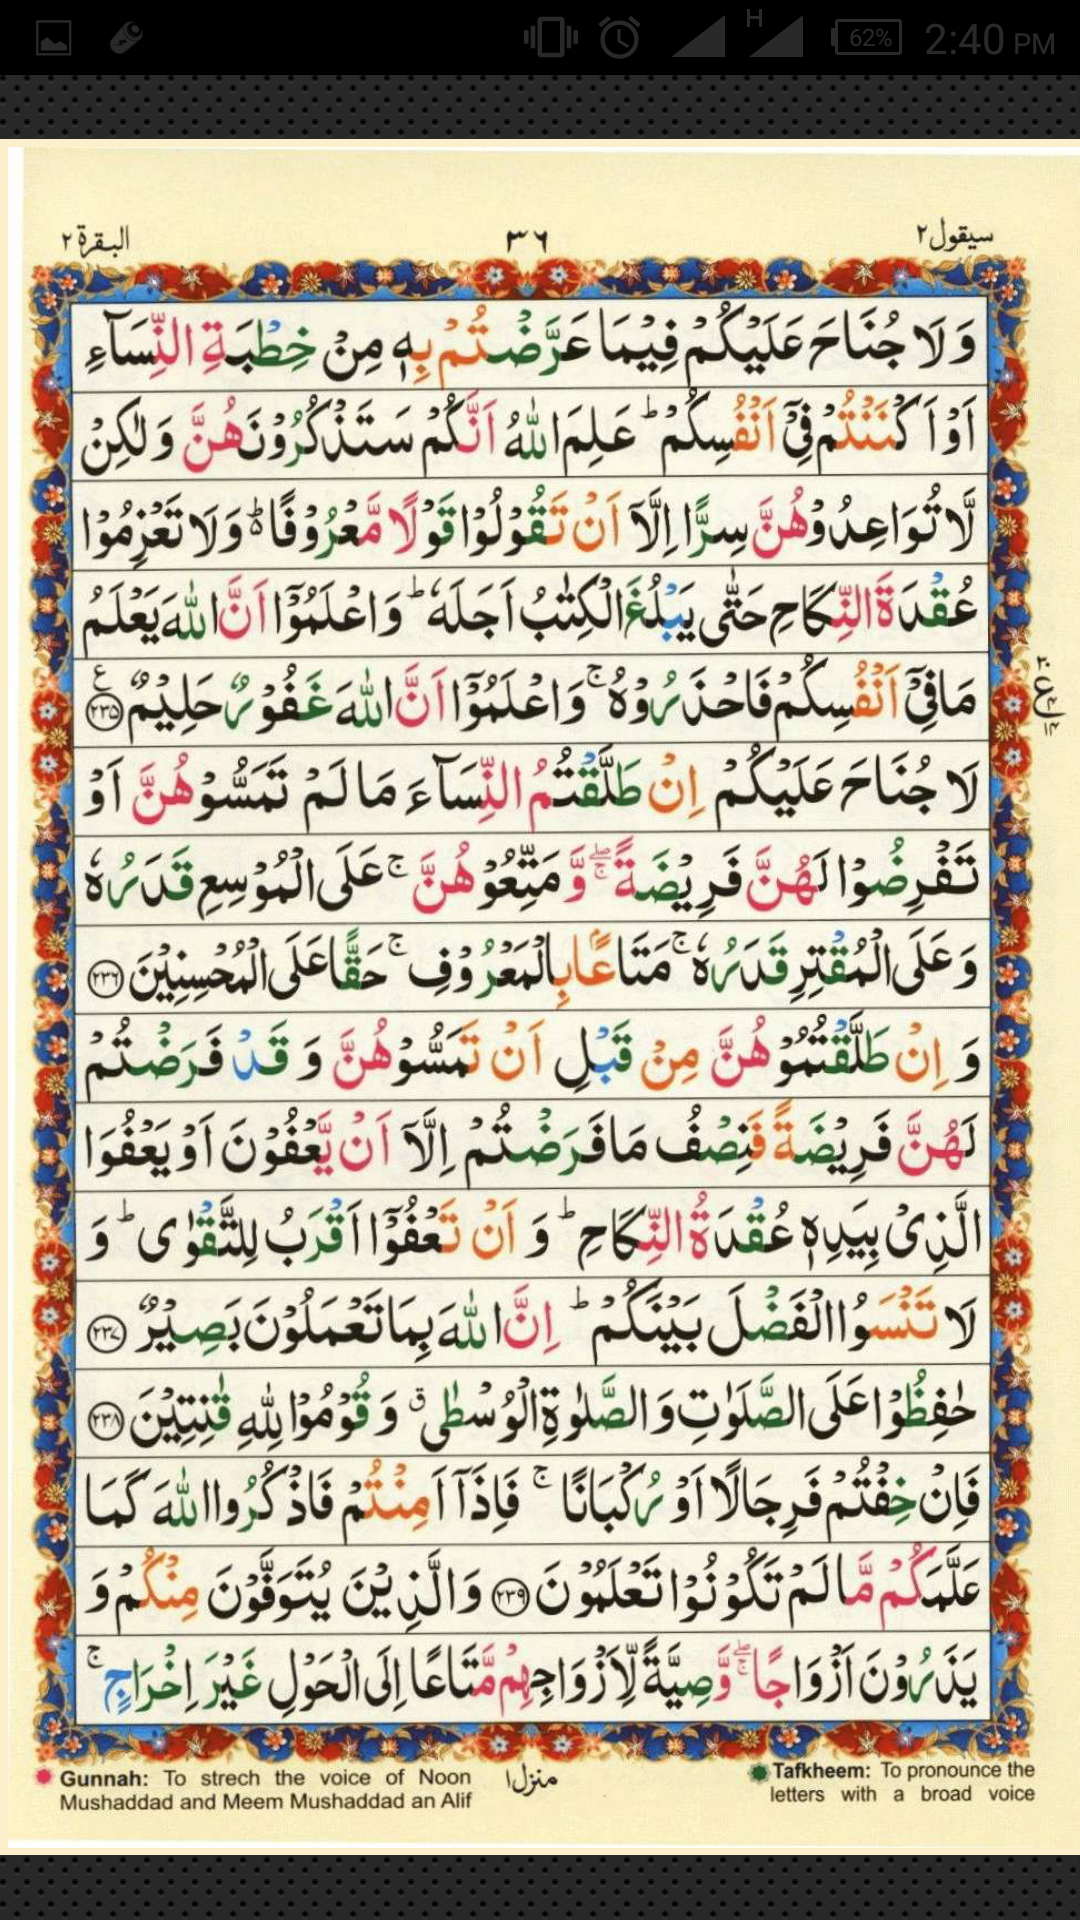 62% 2:40 PM
H
سيقول ٢ ٣٦ البقرة ٢
وَلَا جُنَاحَ عَلَيْكُمْ فِيْمَا عَرَّضْتُمْ بِهٖ مِنْ خِطْبَةِ النِّسَآءِ
اَوْ اَكْنَنْتُمْ فِيْٓ اَنْفُسِكُمْ ؕ عَلِمَ اللّٰهُ اَنَّكُمْ سَتَذْكُرُوْنَهُنَّ وَلٰكِنْ
لَّا تُوَاعِدُوْهُنَّ سِرًّا اِلَّآ اَنْ تَقُوْلُوْا قَوْلًا مَّعْرُوْفًا ؕ۬ وَلَا تَعْزِمُوْا
عُقْدَةَ النِّكَاحِ حَتّٰى يَبْلُغَ الْكِتٰبُ اَجَلَهٗ ؕ وَاعْلَمُوْٓا اَنَّ اللّٰهَ يَعْلَمُ
مَا فِيْٓ اَنْفُسِكُمْ فَاحْذَرُوْهُ ۚ وَاعْلَمُوْٓا اَنَّ اللّٰهَ غَفُوْرٌ حَلِيْمٌ ﴿٢٣٥﴾ ع
٣٠ ع ٤ ١٤
لَا جُنَاحَ عَلَيْكُمْ اِنْ طَلَّقْتُمُ النِّسَآءَ مَا لَمْ تَمَسُّوْهُنَّ اَوْ
تَفْرِضُوْا لَهُنَّ فَرِيْضَةً ۖۚ وَّمَتِّعُوْهُنَّ ۚ عَلَى الْمُوْسِعِ قَدَرُهٗ
وَعَلَى الْمُقْتِرِ قَدَرُهٗ ۚ مَتَاعًۢا بِالْمَعْرُوْفِ ۚ حَقًّا عَلَى الْمُحْسِنِيْنَ ﴿٢٣٦﴾
وَ اِنْ طَلَّقْتُمُوْهُنَّ مِنْ قَبْلِ اَنْ تَمَسُّوْهُنَّ وَ قَدْ فَرَضْتُمْ
لَهُنَّ فَرِيْضَةً فَنِصْفُ مَا فَرَضْتُمْ اِلَّآ اَنْ يَّعْفُوْنَ اَوْ يَعْفُوَا
الَّذِيْ بِيَدِهٖ عُقْدَةُ النِّكَاحِ ؕ وَ اَنْ تَعْفُوْٓا اَقْرَبُ لِلتَّقْوٰى ؕ وَ
لَا تَنْسَوُا الْفَضْلَ بَيْنَكُمْ ؕ اِنَّ اللّٰهَ بِمَا تَعْمَلُوْنَ بَصِيْرٌ ﴿٢٣٧﴾
حٰفِظُوْا عَلَى الصَّلَوٰتِ وَ الصَّلٰوةِ الْوُسْطٰى ۗ وَ قُوْمُوْا لِلّٰهِ قٰنِتِيْنَ ﴿٢٣٨﴾
فَاِنْ خِفْتُمْ فَرِجَالًا اَوْ رُكْبَانًا ۚ فَاِذَآ اَمِنْتُمْ فَاذْكُرُوا اللّٰهَ كَمَا
عَلَّمَكُمْ مَّا لَمْ تَكُوْنُوْا تَعْلَمُوْنَ ﴿٢٣٩﴾ وَالَّذِيْنَ يُتَوَفَّوْنَ مِنْكُمْ وَ
يَذَرُوْنَ اَزْوَاجًا ۖۚ وَّصِيَّةً لِّاَزْوَاجِهِمْ مَّتَاعًا اِلَى الْحَوْلِ غَيْرَ اِخْرَاجٍ ۚ
منزل ١
Gunnah: To strech the voice of Noon
Mushaddad and Meem Mushaddad an Alif
Tafkheem: To pronounce the
letters with a broad voice